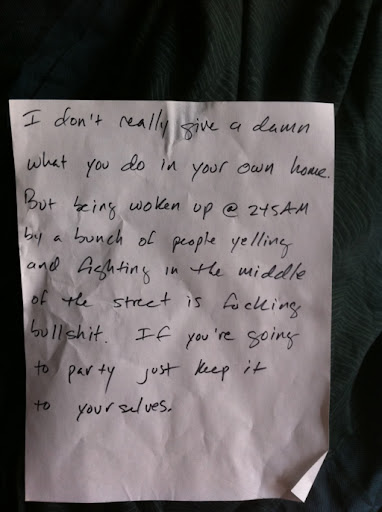 I don't really give a damn
what you do in your own home.
But being woken up @ 245AM
by a bunch of people yelling
and fighting in the middle
of the street is fucking
bullshit. If you're going
to party just keep it
to yourselves.